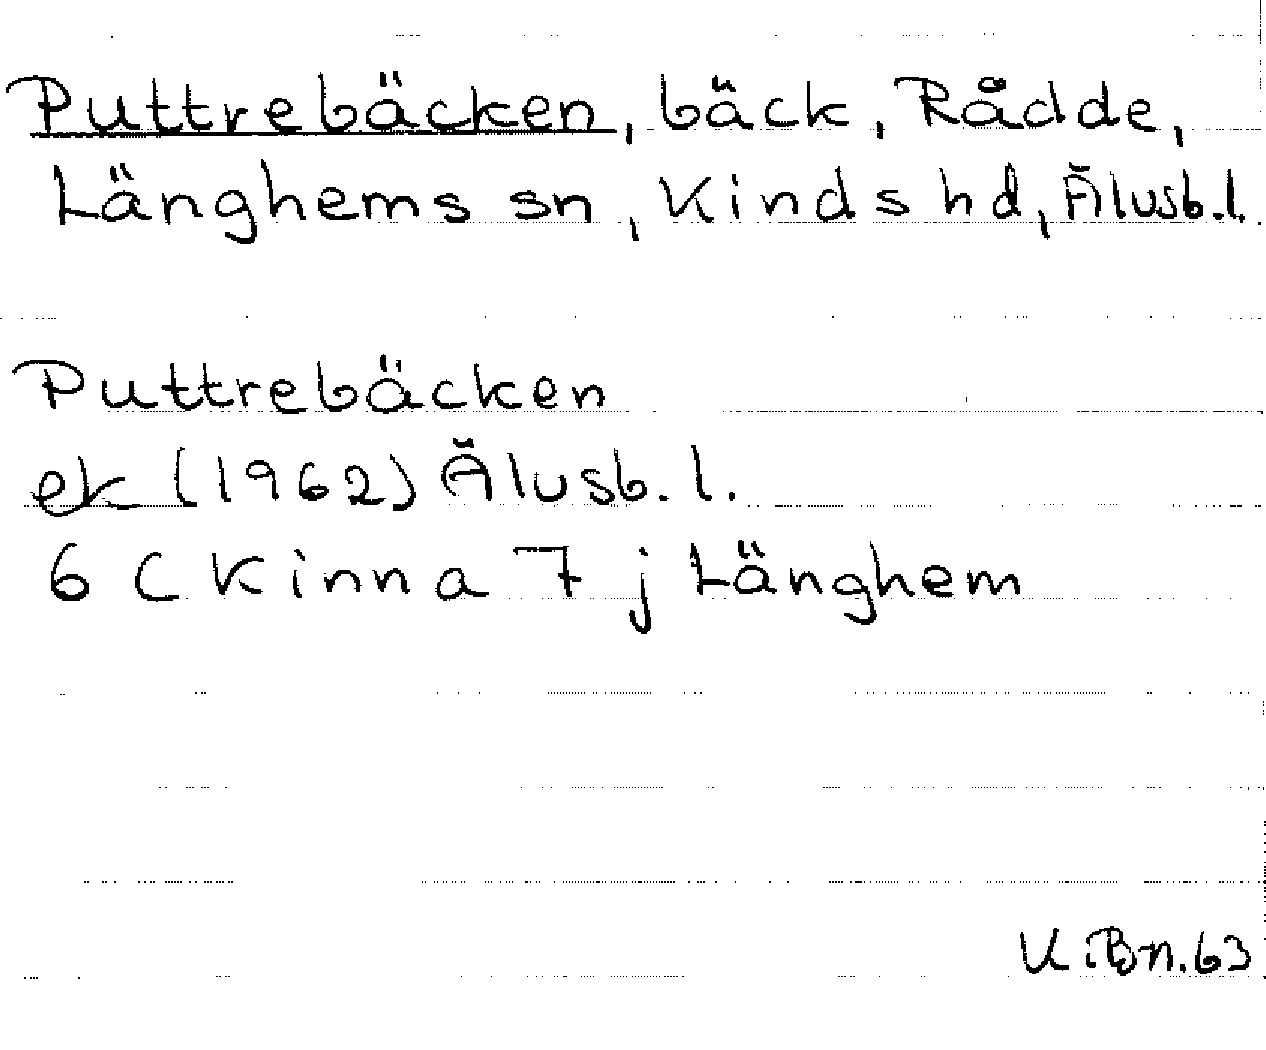 Puttrebäcken, bäck, Rådde,
Länghems sn, Kinds hd, Älvsb.l.
Puttrebäcken
ek (1962) Älvsb.l.
6 C Kinna 7 j Länghem
U.Bn.63